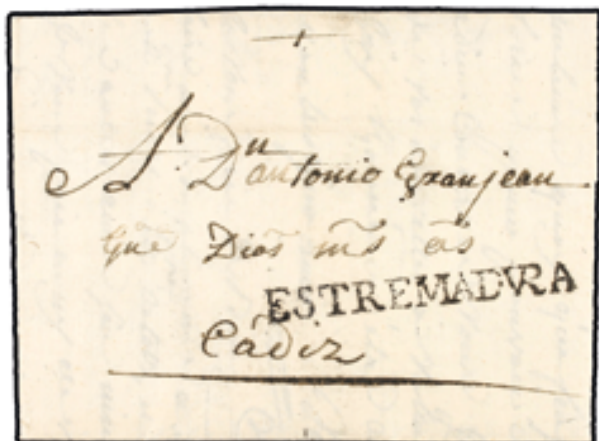 +
A. Dn antonio Granjean
que Dios ms as
ESTREMADVRA
Cádiz